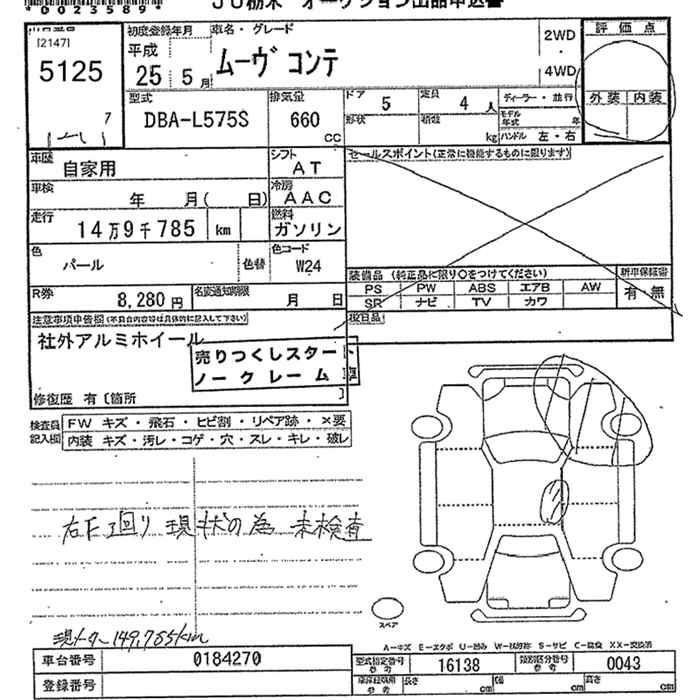 *0023589*
JU栃木 オークション出品申込書
[2147]
5125
7
初度登録年月
平成
25 年 5 月
車名・グレード
ムーヴ コンテ
2WD
・
4WD
評価点
外装 内装
型式
DBA-L575S
排気量
660
CC
ドア 5
定員 4 人
形状
積載
kg
ディーラー・並行
モデル年式 年
ハンドル 左・右
車歴
自家用
シフト
AT
セールスポイント(正常に機能するものに限ります)
車検
年 月( 日)
冷房
AAC
走行
14万9千785 km
燃料
ガソリン
色
パール
色替
色コード
W24
装備品 (純正品に限り○をつけてください)
PS PW ABS エアB AW
SR ナビ TV カワ
新車保証書
有・無
R券
8,280円
名変通知期限
月 日
注意事項申告欄(不具合内容等は具体的に記入して下さい)
社外アルミホイール
売りつくしスタート
ノークレーム 車
修復歴 有〔箇所 〕
検査員
記入欄
FW キズ・飛石・ヒビ割・リペア跡・×要
内装 キズ・汚レ・コゲ・穴・スレ・キレ・破レ
右F廻り 現状の為 未検査
現メーター149,785km
スペア
A-キズ E-エクボ U-凹み W-波跡 S-サビ C-腐食 XX-交換済
車台番号 0184270
型式指定番号 参考 16138
類別区分番号 参考 0043
登録番号
参考 長さ cm 幅 cm 高さ cm